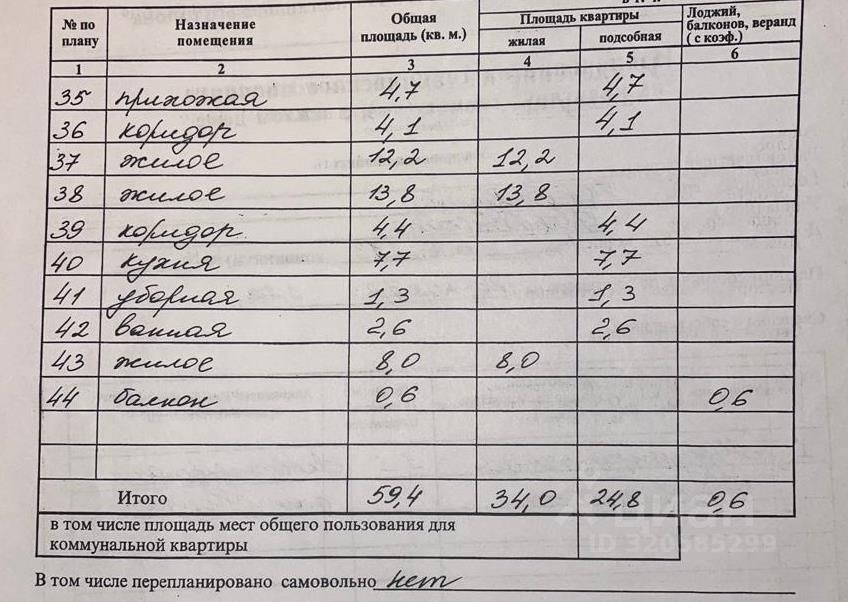 № по плану Назначение помещения Общая площадь (кв. м.) Площадь квартиры Лоджий, балконов, веранд ( с коэф.)
жилая подсобная
1 2 3 4 5 6
35 прихожая 4,7 4,7
36 коридор 4,1 4,1
37 жилое 12,2 12,2
38 жилое 13,8 13,8
39 коридор 4,4 4,4
40 кухня 7,7 7,7
41 уборная 1,3 1,3
42 ванная 2,6 2,6
43 жилое 8,0 8,0
44 балкон 0,6 0,6
Итого 59,4 34,0 24,8 0,6
в том числе площадь мест общего пользования для
коммунальной квартиры
В том числе перепланировано самовольно нет
циан
ID 320585299